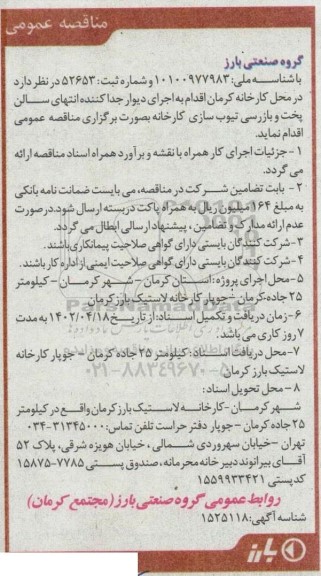 مناقصه عمومی
گروه صنعتی بارز
با شناسه ملی: ۱۰۱۰۰۹۷۷۹۸۳ و شماره ثبت: ۵۲۶۵۳ در نظر دارد
در محل کارخانه کرمان اقدام به اجرای دیوار جدا کننده انتهای سالن
پخت و بازرسی تیوب سازی کارخانه بصورت برگزاری مناقصه عمومی
اقدام نماید.
۱- جزئیات اجرای کار همراه با نقشه و برآورد همراه اسناد مناقصه ارائه
می گردد.
۲- بابت تضامین شرکت در مناقصه، می بایست ضمانت نامه بانکی
به مبلغ ۱۶۴ میلیون ریال به همراه پاکت دربسته ارسال شود. در صورت
عدم ارائه مدارک و تضامین، پیشنهاد ارسالی ابطال می گردد.
۳- شرکت کنندگان بایستی دارای گواهی صلاحیت پیمانکاری باشند.
۴- شرکت کنندگان بایستی دارای گواهی صلاحیت ایمنی از اداره کار باشند.
۵- محل اجرای پروژه: استان کرمان - شهر کرمان - کیلومتر
۲۵ جاده کرمان - جوپار کارخانه لاستیک بارز کرمان
۶- زمان دریافت و تکمیل اسناد: از تاریخ ۱۴۰۲/۰۴/۱۸ به مدت
۷ روز کاری می باشد.
۷- محل دریافت اسناد: کیلومتر ۲۵ جاده کرمان - جوپار کارخانه
لاستیک بارز کرمان
۸- محل تحویل اسناد:
شهر کرمان - کارخانه لاستیک بارز کرمان واقع در کیلومتر
۲۵ جاده کرمان - جوپار دفتر حراست تلفن تماس: ۳۱۳۴۵۰۰۰-۰۳۴
تهران - خیابان سهروردی شمالی، خیابان هویزه شرقی، پلاک ۵۲
آقای بیرانوند دبیرخانه محرمانه، صندوق پستی ۷۷۸۵-۱۵۸۷۵
کدپستی ۱۵۵۹۹۳۳۴۲۱
روابط عمومی گروه صنعتی بارز (مجتمع کرمان)
شناسه آگهی: ۱۵۲۵۱۱۸
بارز
۰۲۱-۸۸۳۴۹۶۷۰-۵